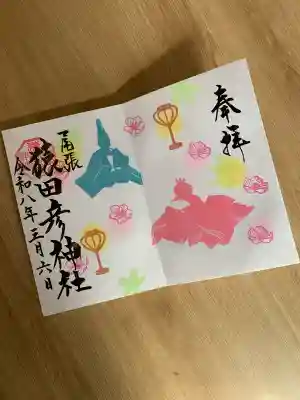 奉拝
尾張
猿田彦神社
令和八年三月六日